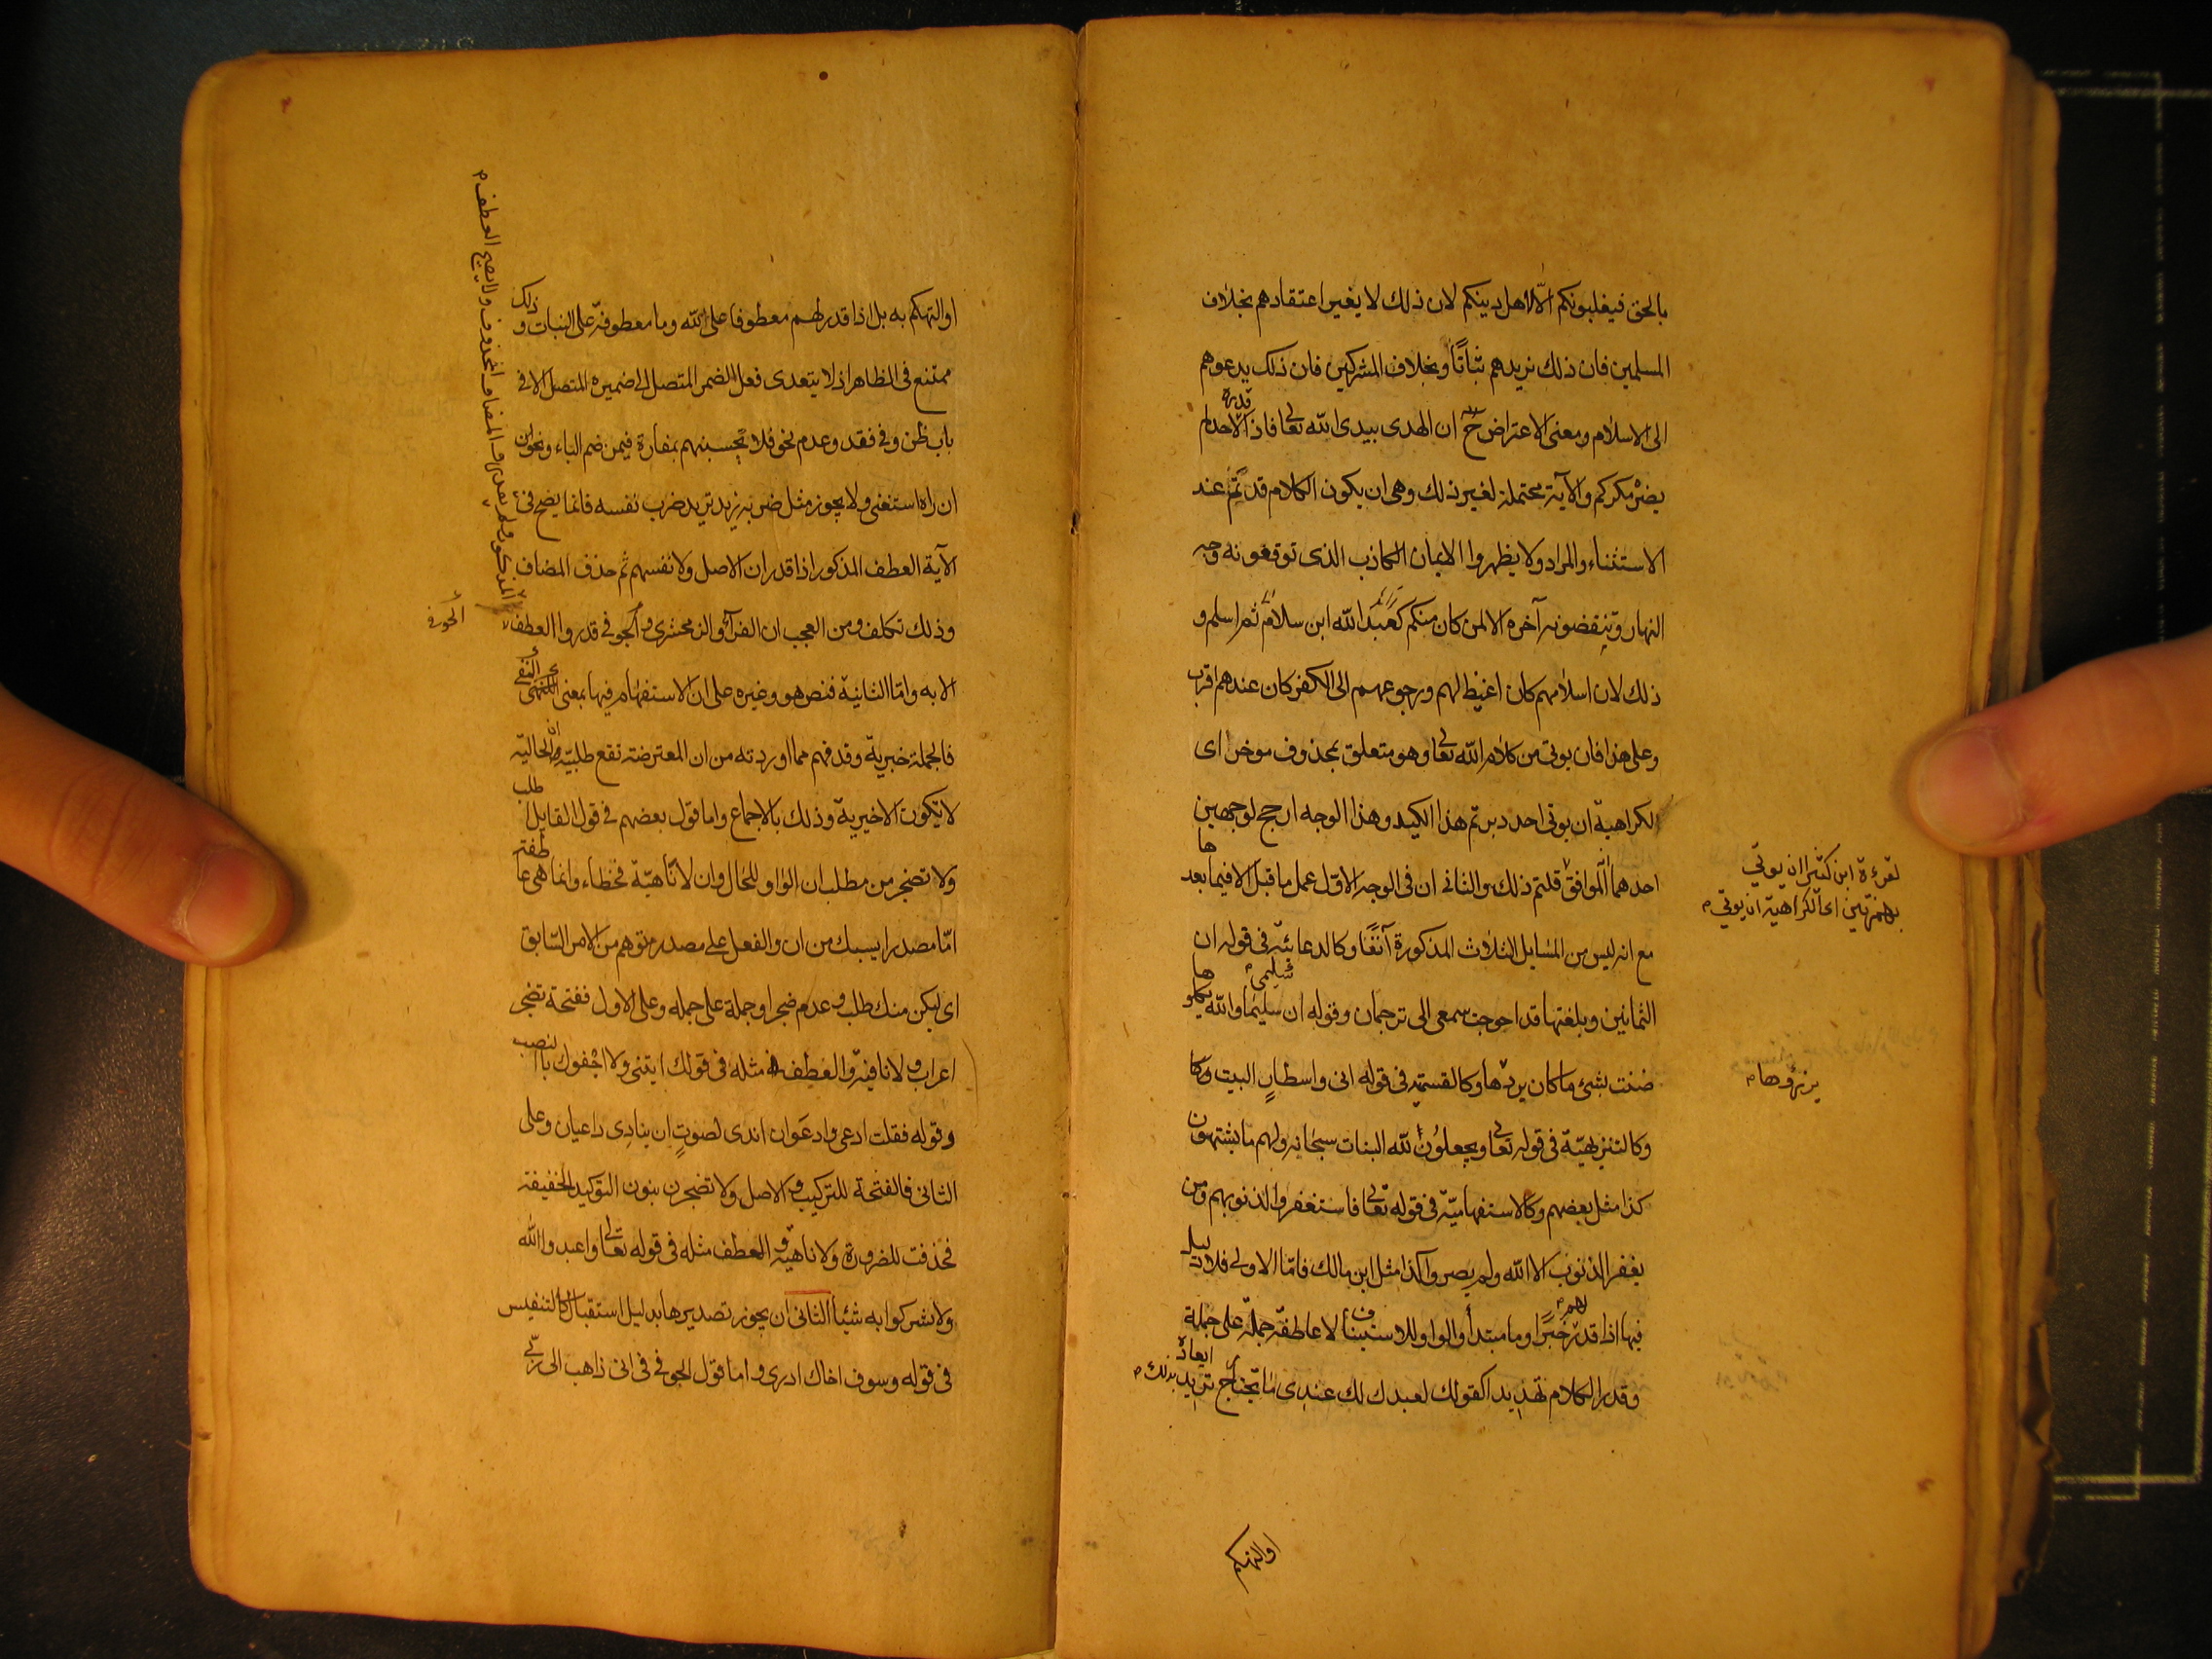 بالحق فيغلبونكم الّا لاهل دينكم لان ذلك لا يغير اعتقادهم بخلاف
المسلمين فان ذلك يزيدهم ثباتًا وبخلاف المشركين فان ذلك يدعوهم
الى الاسلام ومعنى الاعتراض ح ان الهدى بيدى الله تعا فاذا قدره لاحد لم
يضره مكركم والآية محتملة لغير ذلك وهى ان يكون الكلام قد تم عند
الاستثناء والمراد ولا يظهروا الايمان الكاذب الذى توقعونه وجه
النهار وتنقضونه آخره الا لمن كان منكم كعبد الله ابن سلام ثم اسلم و
ذلك لان اسلامهم كان اغيظ لهم ورجوعهم الى الكفر كان عندهم اقرب
وعلى هذا فان يوتى من كلام الله تعا وهو متعلق بمحذوف موخر اى
لكراهية ان يوتى احد دبرتم هذا الكيد وهذا الوجه ارجح لوجهين
احدهما الموافق
لقرءة ابن كثير اان يوتى
بهمزتين اى الكراهية ان يوتى م
قلتم ذلك والثانى ان فى الوجه الاول عمل ما قبل الا فيما بعدها
مع انه ليس من المسايل الثلاث المذكورة آنفًا وكالدعائية فى قوله ان
الثمانين وبلغتها قد احوجت سمعى الى ترجمان وقوله ان سليمى والله يكلوها
ضنت بشئ ما كان يرزوها وكالقسمية فى قوله انى واسطار البيت وكا
يرزؤها م
وكالتنزيهية فى قوله تعا ويجعلون لله البنات سبحانه ولهم ما يشتهون
كذا مثل بعضهم وكالاستفهامية فى قوله تعا فاستغفروا لذنوبهم ومن
يغفر الذنوب الا الله ولم يصروا كذا مثل ابن مالك فامّا الاولى فلا دليل
فيها اذا قدر لهم خبرًا وما مبتدأ والواو للاستيناف لا عاطفة جملة على جملة
وقدر الكلام تهديدا كقولك لعبدك لك عندى ما تحتاج تريد بذلك ايعاده
او التهكم
او التهكم به بل اذا قدر لهم معطوفا على لله وما معطوفة على البنات وذلك
ممتنع فى الظاهر اذ لا يتعدى فعل الضمير المتصل الى ضميره المتصل الا فى
باب ظن وفى فقد وعدم نحو فلا تحسبنهم بمفازة فيمن ضم الباء ونحو
ان راه استغنى ولا يجوز مثل ضربه زيد تريد ضرب نفسه فانما يصح فى
الآية العطف المذكور اذا قدر ان الاصل ولانفسهم ثم حذف المضاف
وذلك تكلف ومن العجب ان الفرآء والزمخشرى والحوفى قدروا العطف
الحوفى
المذكور ولم يقدروا المضاف المحذوف ولا يصح العطف م
الا به وامّا الثانية فنص هو وغيره على ان الاستفهام فيها بمعنى النفى
فالجملة خبرية وقد فهم مما اوردته من ان المعترضة تقع طلبية ان الحالية
لا تكون الا خبرية وذلك بالاجماع واما قول بعضهم فى قول القايل اطلب
ولا تضجر من مطلب ان الواو للحال وان لا ناهية فخطاء وانما هى عاطفة
امّا مصدرا يسبك من ان والفعل على مصدر متوهم من الامر السّابق
اى ليكن منك طلب وعدم ضجر او جملة على جملة وعلى الاول ففتحة تضجر
اعراب ولا نافية والعطف مثله فى قولك ايتنى ولا اجفوك بالنصب
وقوله فقلت ادعى وادعوان اندى لصوت ان ينادى داعيان وعلى
الثانى فالفتحة للتركيب والاصل ولا تضجرن بنون التوكيد الخفيفة
فحذفت للضرورة ولا ناهية والعطف مثله فى قوله تعا واعبدوا الله
ولا تشركوا به شيئا الثانى ان يجوز تصديرها بدليل استقبال كالتنفيس
فى قوله وسوف اخال ادرى واما قول الحوفى فى انى ذاهب الى ربّى